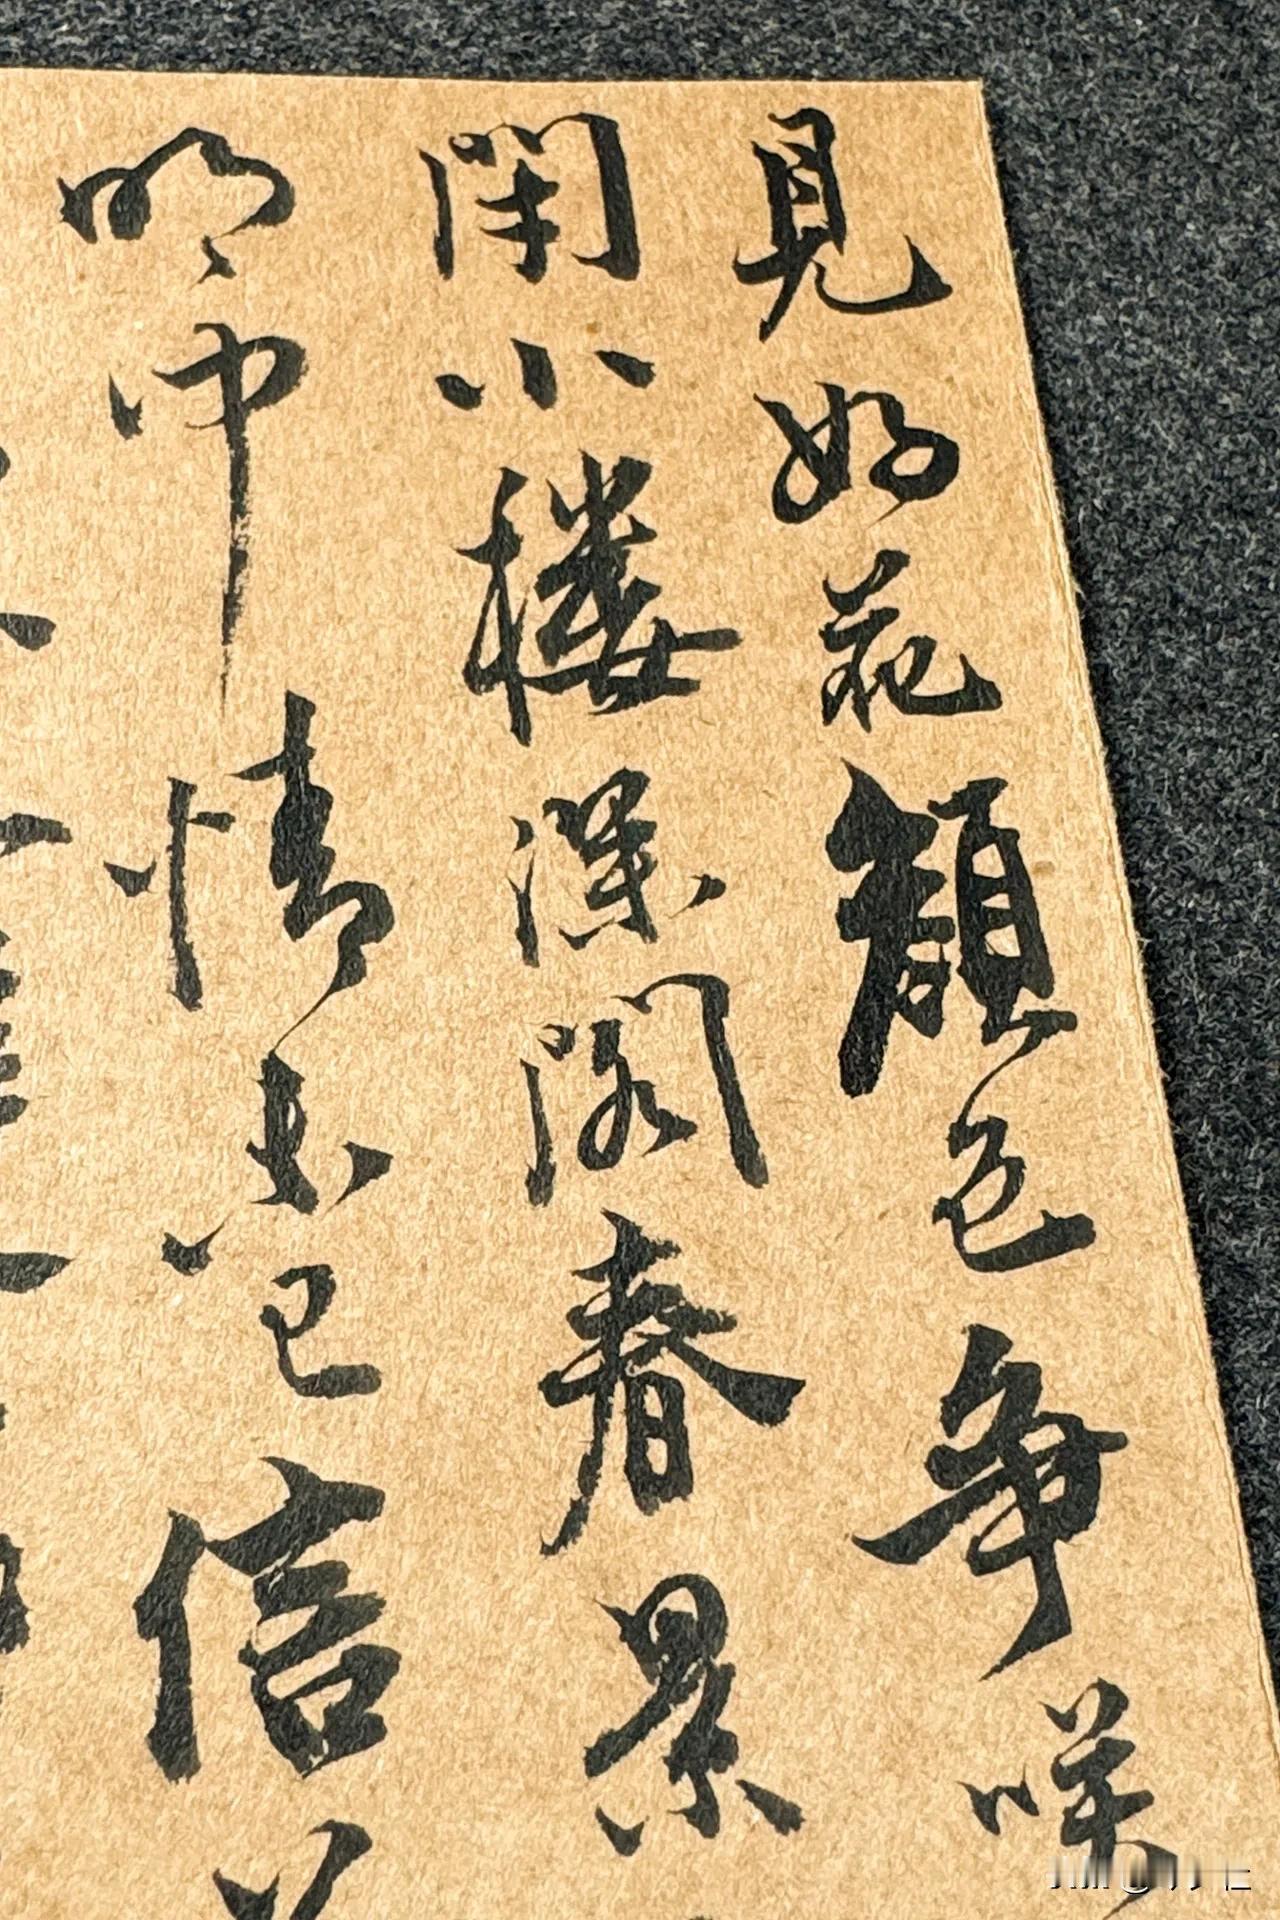 見好花顏色爭咲
閉小樓深閣春景
明中情未已信